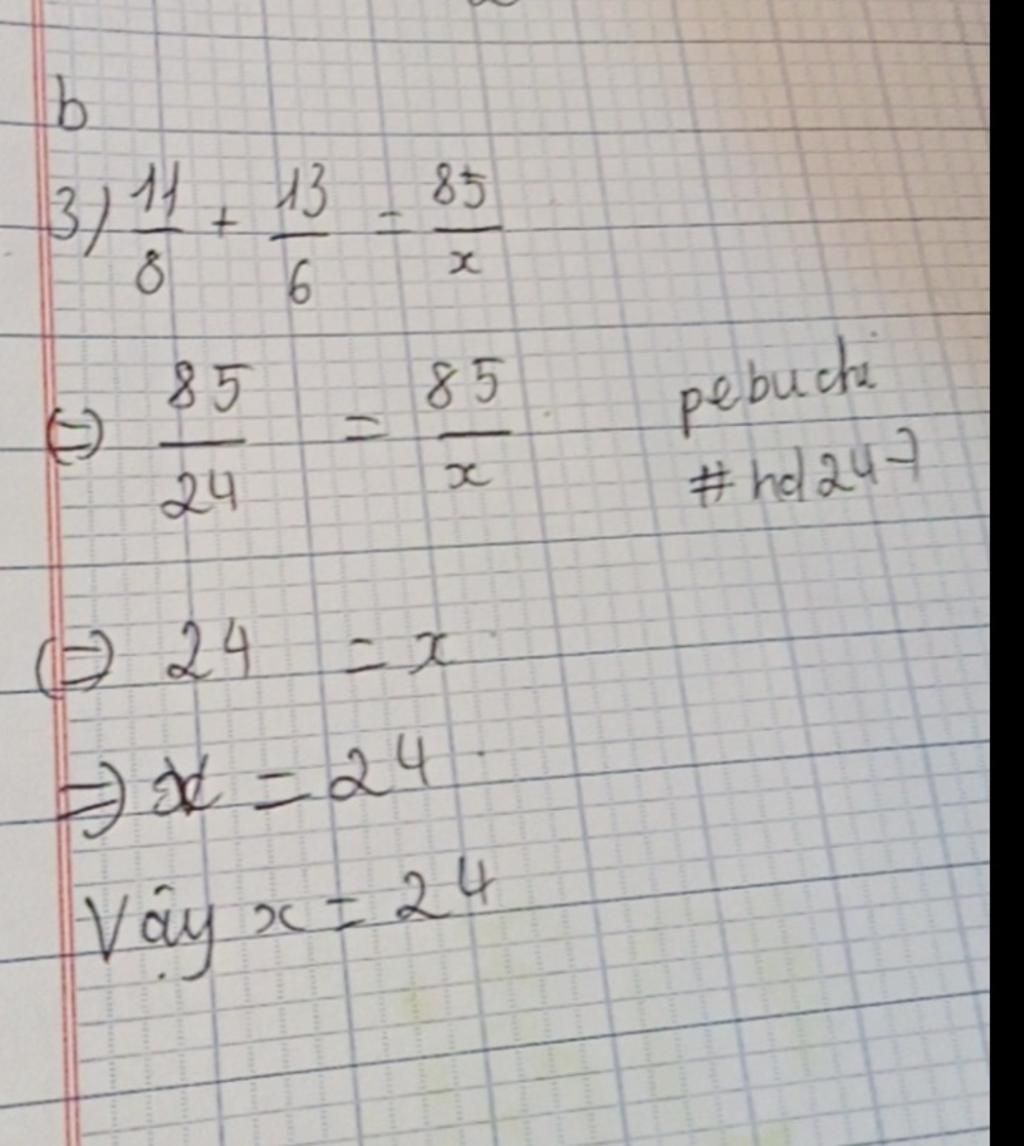 b
3) 11/8 + 13/6 = 85/x
⇔ 85/24 = 85/x
pebuchi
#hd247
⇔ 24 = x
⇒ x = 24
Vậy x = 24